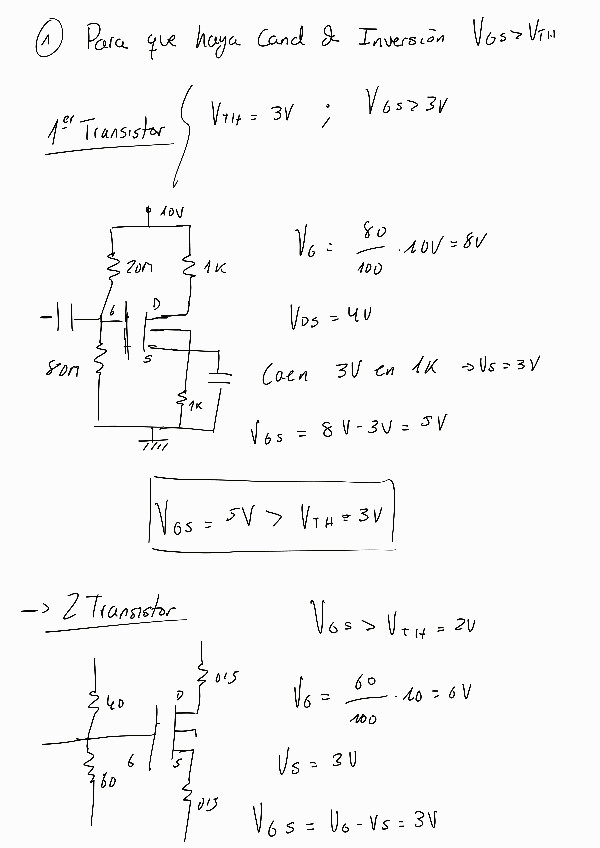 1 Para que haya Canal de Inversión VGS > VTH
1er Transistor
VTH = 3V ; VGS > 3V
10V
20M
1K
G
D
S
80M
1K
VG = 80/100 · 10V = 8V
VDS = 4V
Caen 3V en 1K → VS = 3V
VGS = 8V - 3V = 5V
VGS = 5V > VTH = 3V
→ 2 Transistor
VGS > VTH = 2V
40
D
0'5
G
S
60
0'5
VG = 60/100 · 10 = 6V
VS = 3V
VGS = VG - VS = 3V